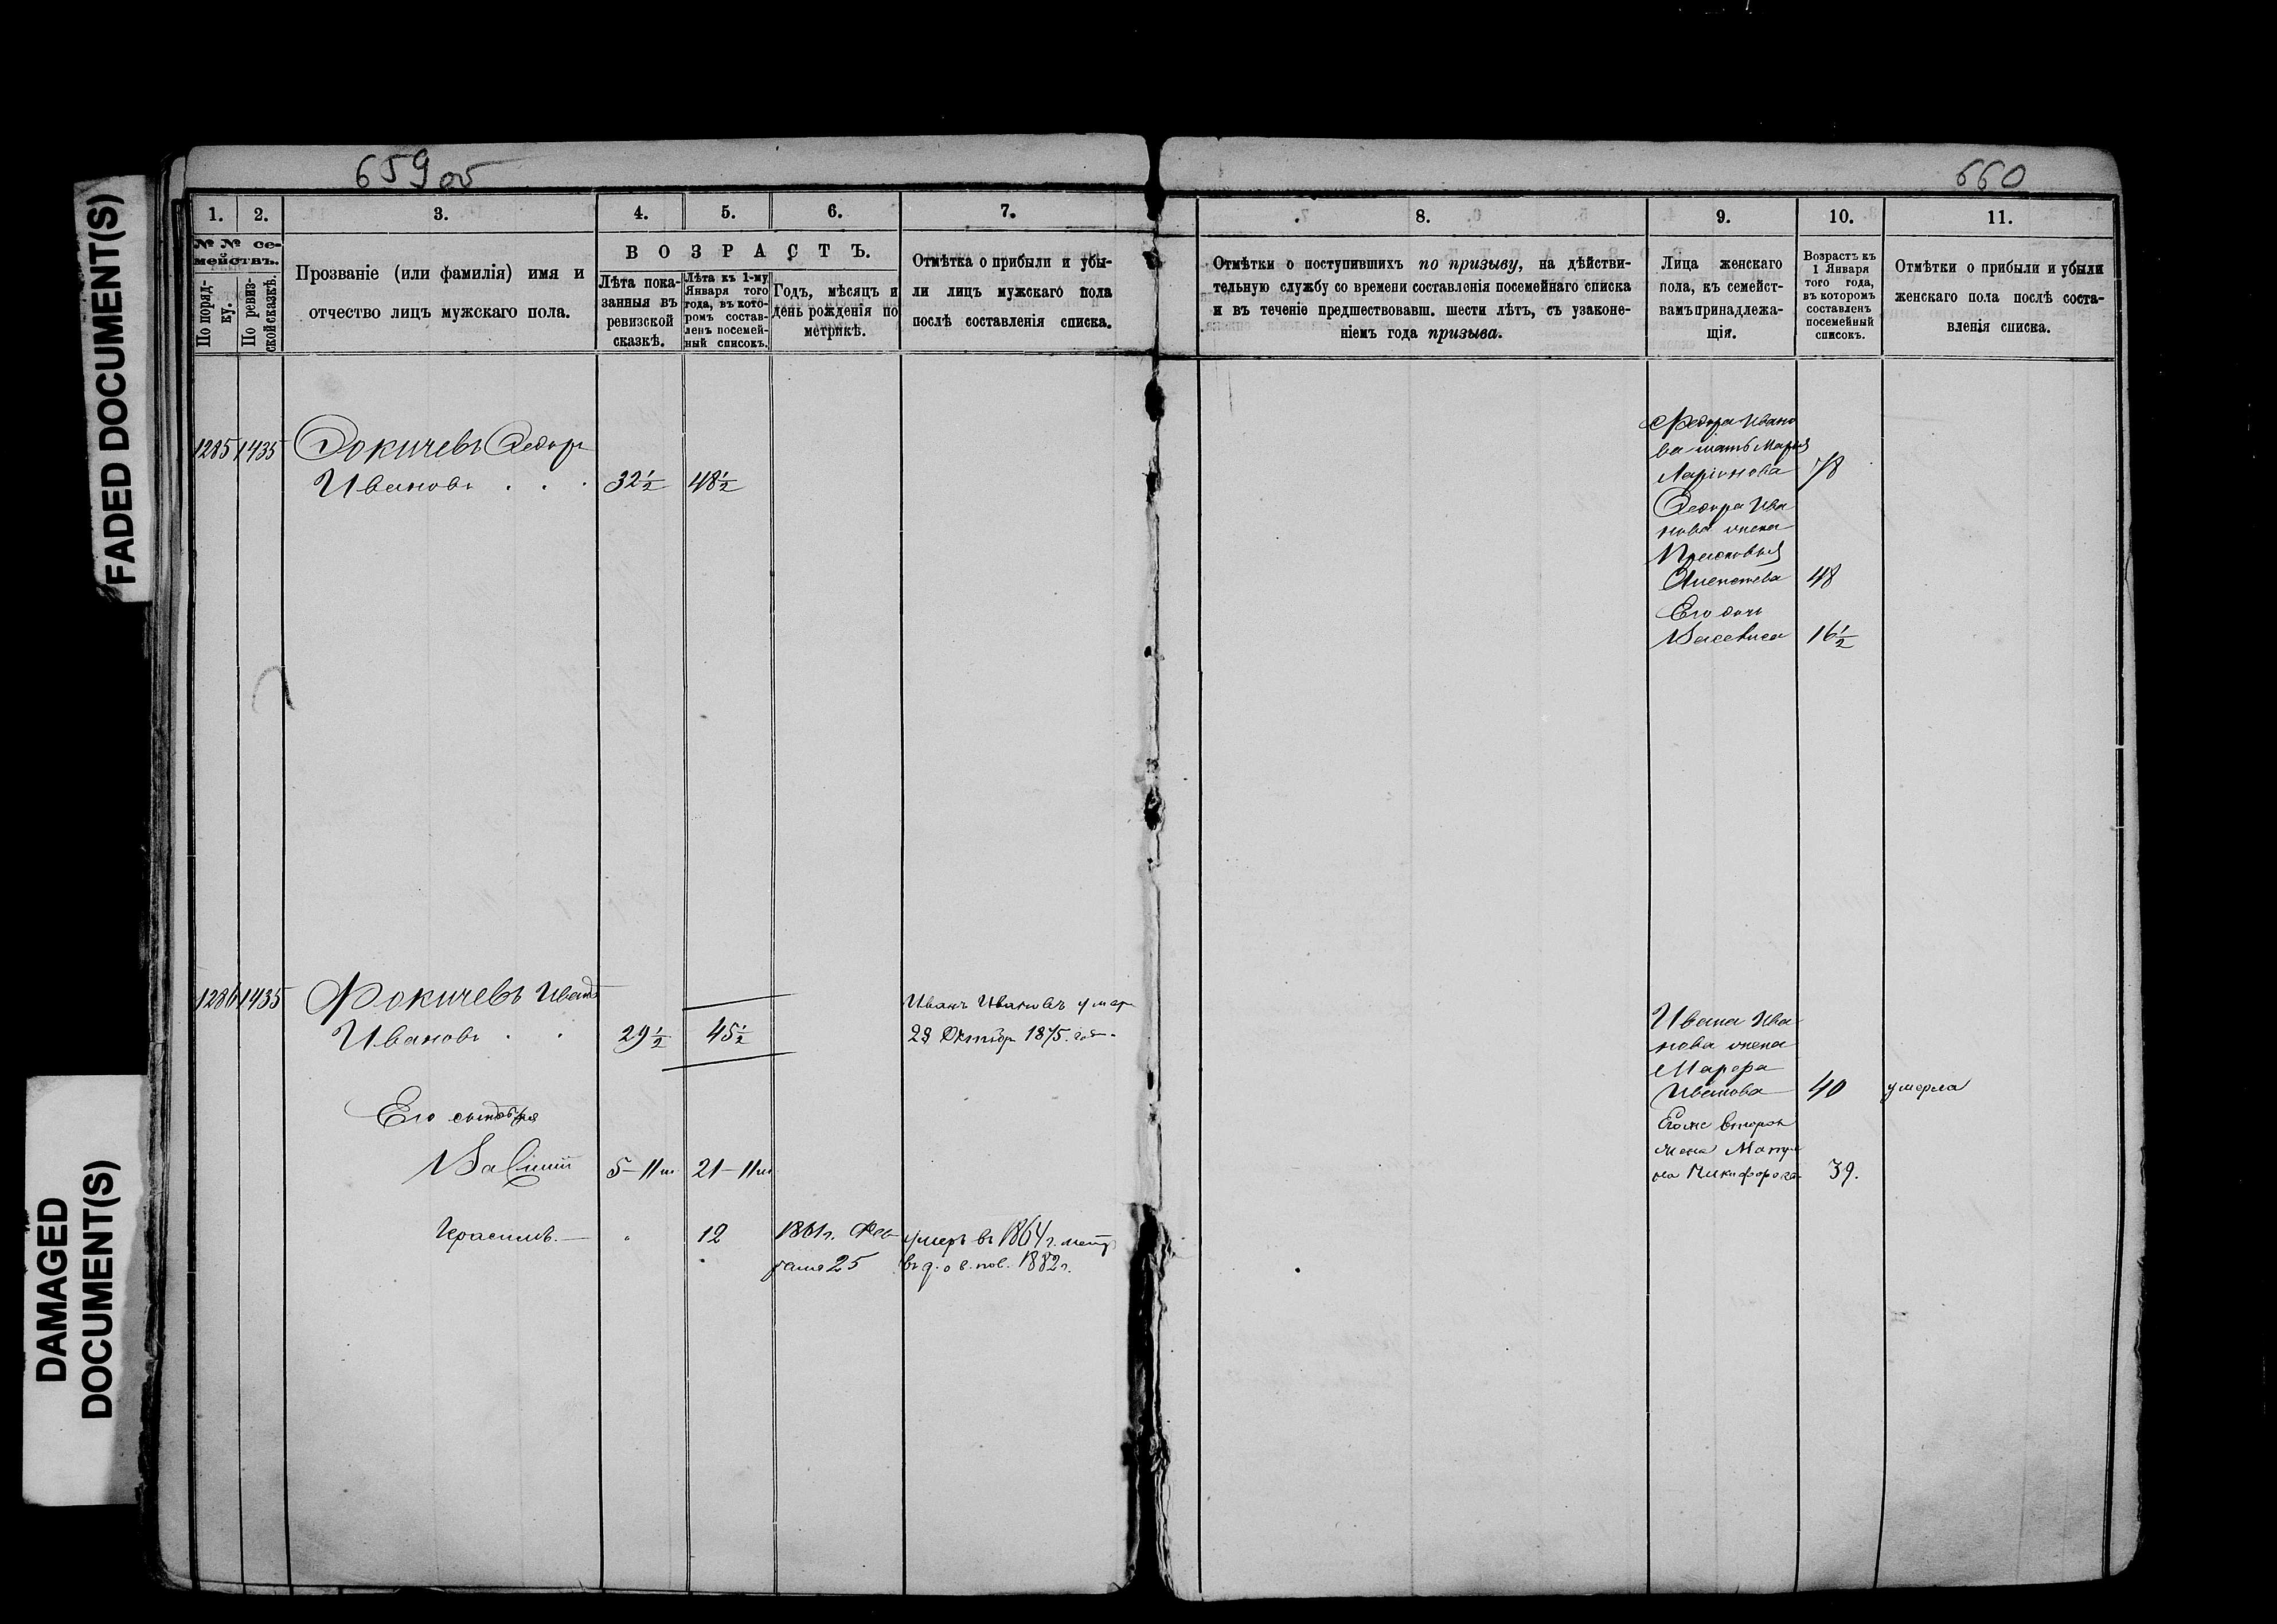 FADED DOCUMENT(S)
DAMAGED
DOCUMENT(S)
659 об
1.
2.
3.
4.
5.
6.
7.
№ № се-
мействъ.
По поряд-
ку.
По ревиз-
ской сказкѣ.
Прозваніе (или фамилія) имя и
отчество лицъ мужскаго пола.
ВОЗРАСТЪ.
Лѣта пока-
занныя въ
ревизской
сказкѣ.
Лѣта къ 1-му
Января того
года, въ кото-
ромъ состав-
ленъ посемей-
ный списокъ.
Годъ, мѣсяцъ и
день рожденія по
метрикѣ.
Отмѣтка о прибыли и убы-
ли лицъ мужскаго пола
послѣ составленія списка.
1285 1435 Фокичевъ Федоръ
Ивановъ . . . 32½ 48½
1286 1435 Фокичевъ Иванъ
Ивановъ . . 29½ 45½
Иванъ Ивановъ умеръ
28 Октября 1875. год.
Его сыновья
5–11 м. 21–11 м.
Герасимъ.— 12
1861 г. Фев-
раля 25
умеръ въ 1864 г.
1882 г.
660
8.
9.
10.
11.
Отмѣтки о поступившихъ по призыву, на дѣйстви-
тельную службу со времени составленія посемейнаго списка
и въ теченіе предшествовавш. шести лѣтъ, съ узаконе-
ніемъ года призыва.
Лица женскаго
пола, къ семейст-
вамъ принадлежа-
щія.
Возрастъ къ
1 Января
того года,
въ которомъ
составленъ
посемейный
списокъ.
Отмѣтки о прибыли и убыли
женскаго пола послѣ соста-
вленія списка.
Федора Ивано
ва мать Марья
Ларіонова 78
Федора Ива
нова жена
Прасковья
48
Его дочь
Василиса 16½
Ивана Ива
нова жена
Марфа
Иванова 40 умерла
Егоже вторая
жена Матре
на Никифорова 39.